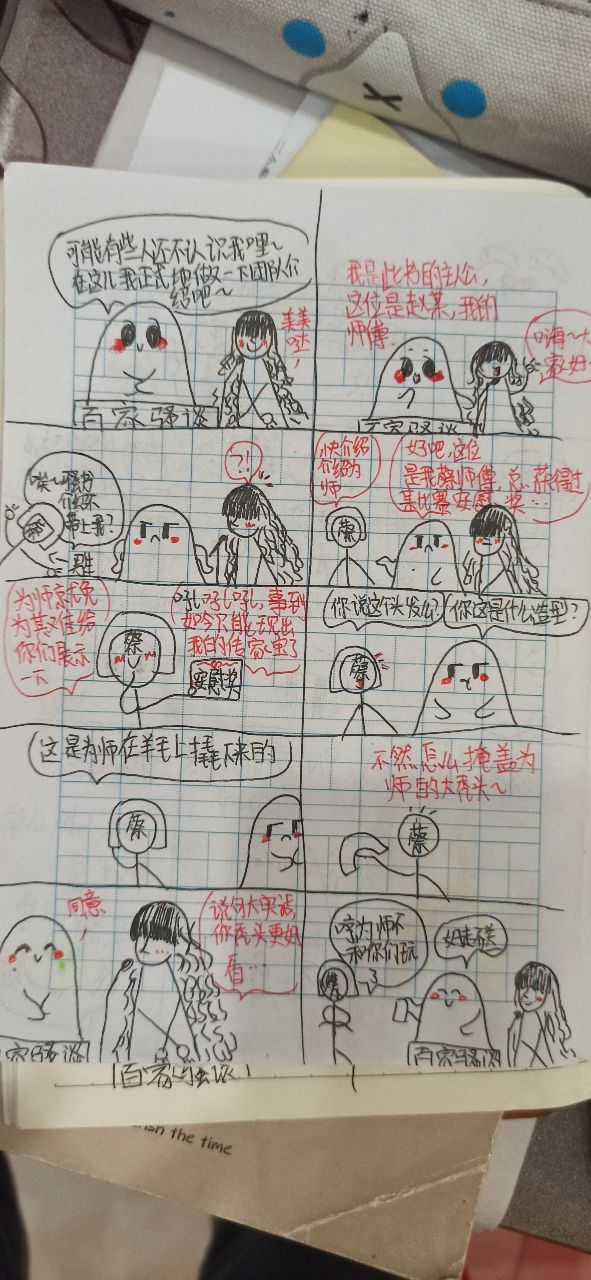 可能有些人还不认识我哩~
在这儿我正式地做一下团队介
绍吧~
美美
哒,
百家骚谈
我是此书的主人公,
这位是赵某,我的
师傅.
嗨~大
家好~
百家骚谈
?!
快介绍
介绍为
师
蔡
好吧,这位
是我蔡师傅,总获得过
某比赛安慰奖…
为师就免
为其难给
你们展示
一下
蔡
吼吼吼,事到
如今只能现出
我的传家宝了
安慰奖
你说这个头发么?
你这是什么造型?
蔡
这是为师在羊毛上撬下来的
蔡
不然怎么掩盖为
师的大秃头~
蔡
同意,
说句大实话,
你秃头更好
看…
家骚谈
哼为师不
和你们玩
了
蔡
不送
百家骚谈
ish the time